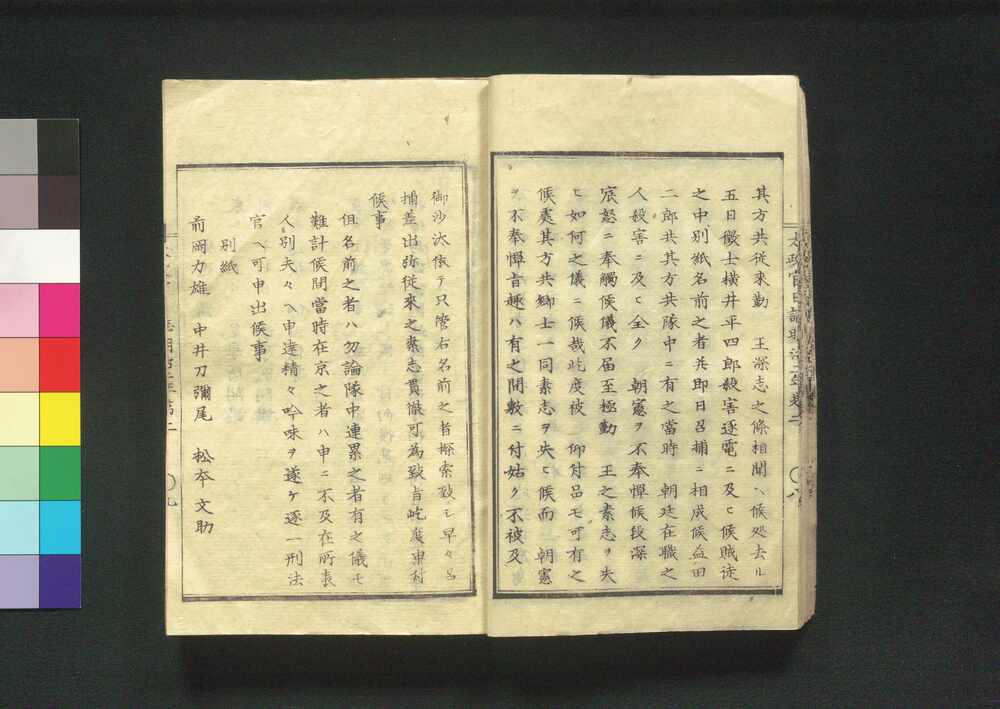 其方共従来勤　王深志之條相聞ヘ候処去ル
五日徴士横井平四郎殺害逐電ニ及ヒ候賊徒
之中別紙名前之者共即日召捕ニ相成候益田
二郎共其方共隊中ニ有之當時　朝廷在職之
人殺害ニ及ヒ全ク　朝憲ヲ不奉憚候段深
宸怒ニ奉觸候儀不届至極勤　王之素志ヲ失
ヒ如何之儀ニ候哉此度被　仰付品モ可有之
候處其方共郷士一同素志ヲ失ヒ候而　朝憲
ヲ不奉憚旨趣ハ有之間敷ニ付姑ク不被及
御沙汰依テ只管右名前之者探索致シ早々召
捕差出弥従來之素志貫徹可為致旨屹度申付
候事
但名前之者ハ勿論隊中連累之者有之儀モ
難計候間當時在京之者ハ申ニ不及在所表
人別夫々ヘ申達精々吟味ヲ遂ケ逐一刑法
官ヘ可申出候事
別紙
前岡力雄　中井刀彌尾　松本文助